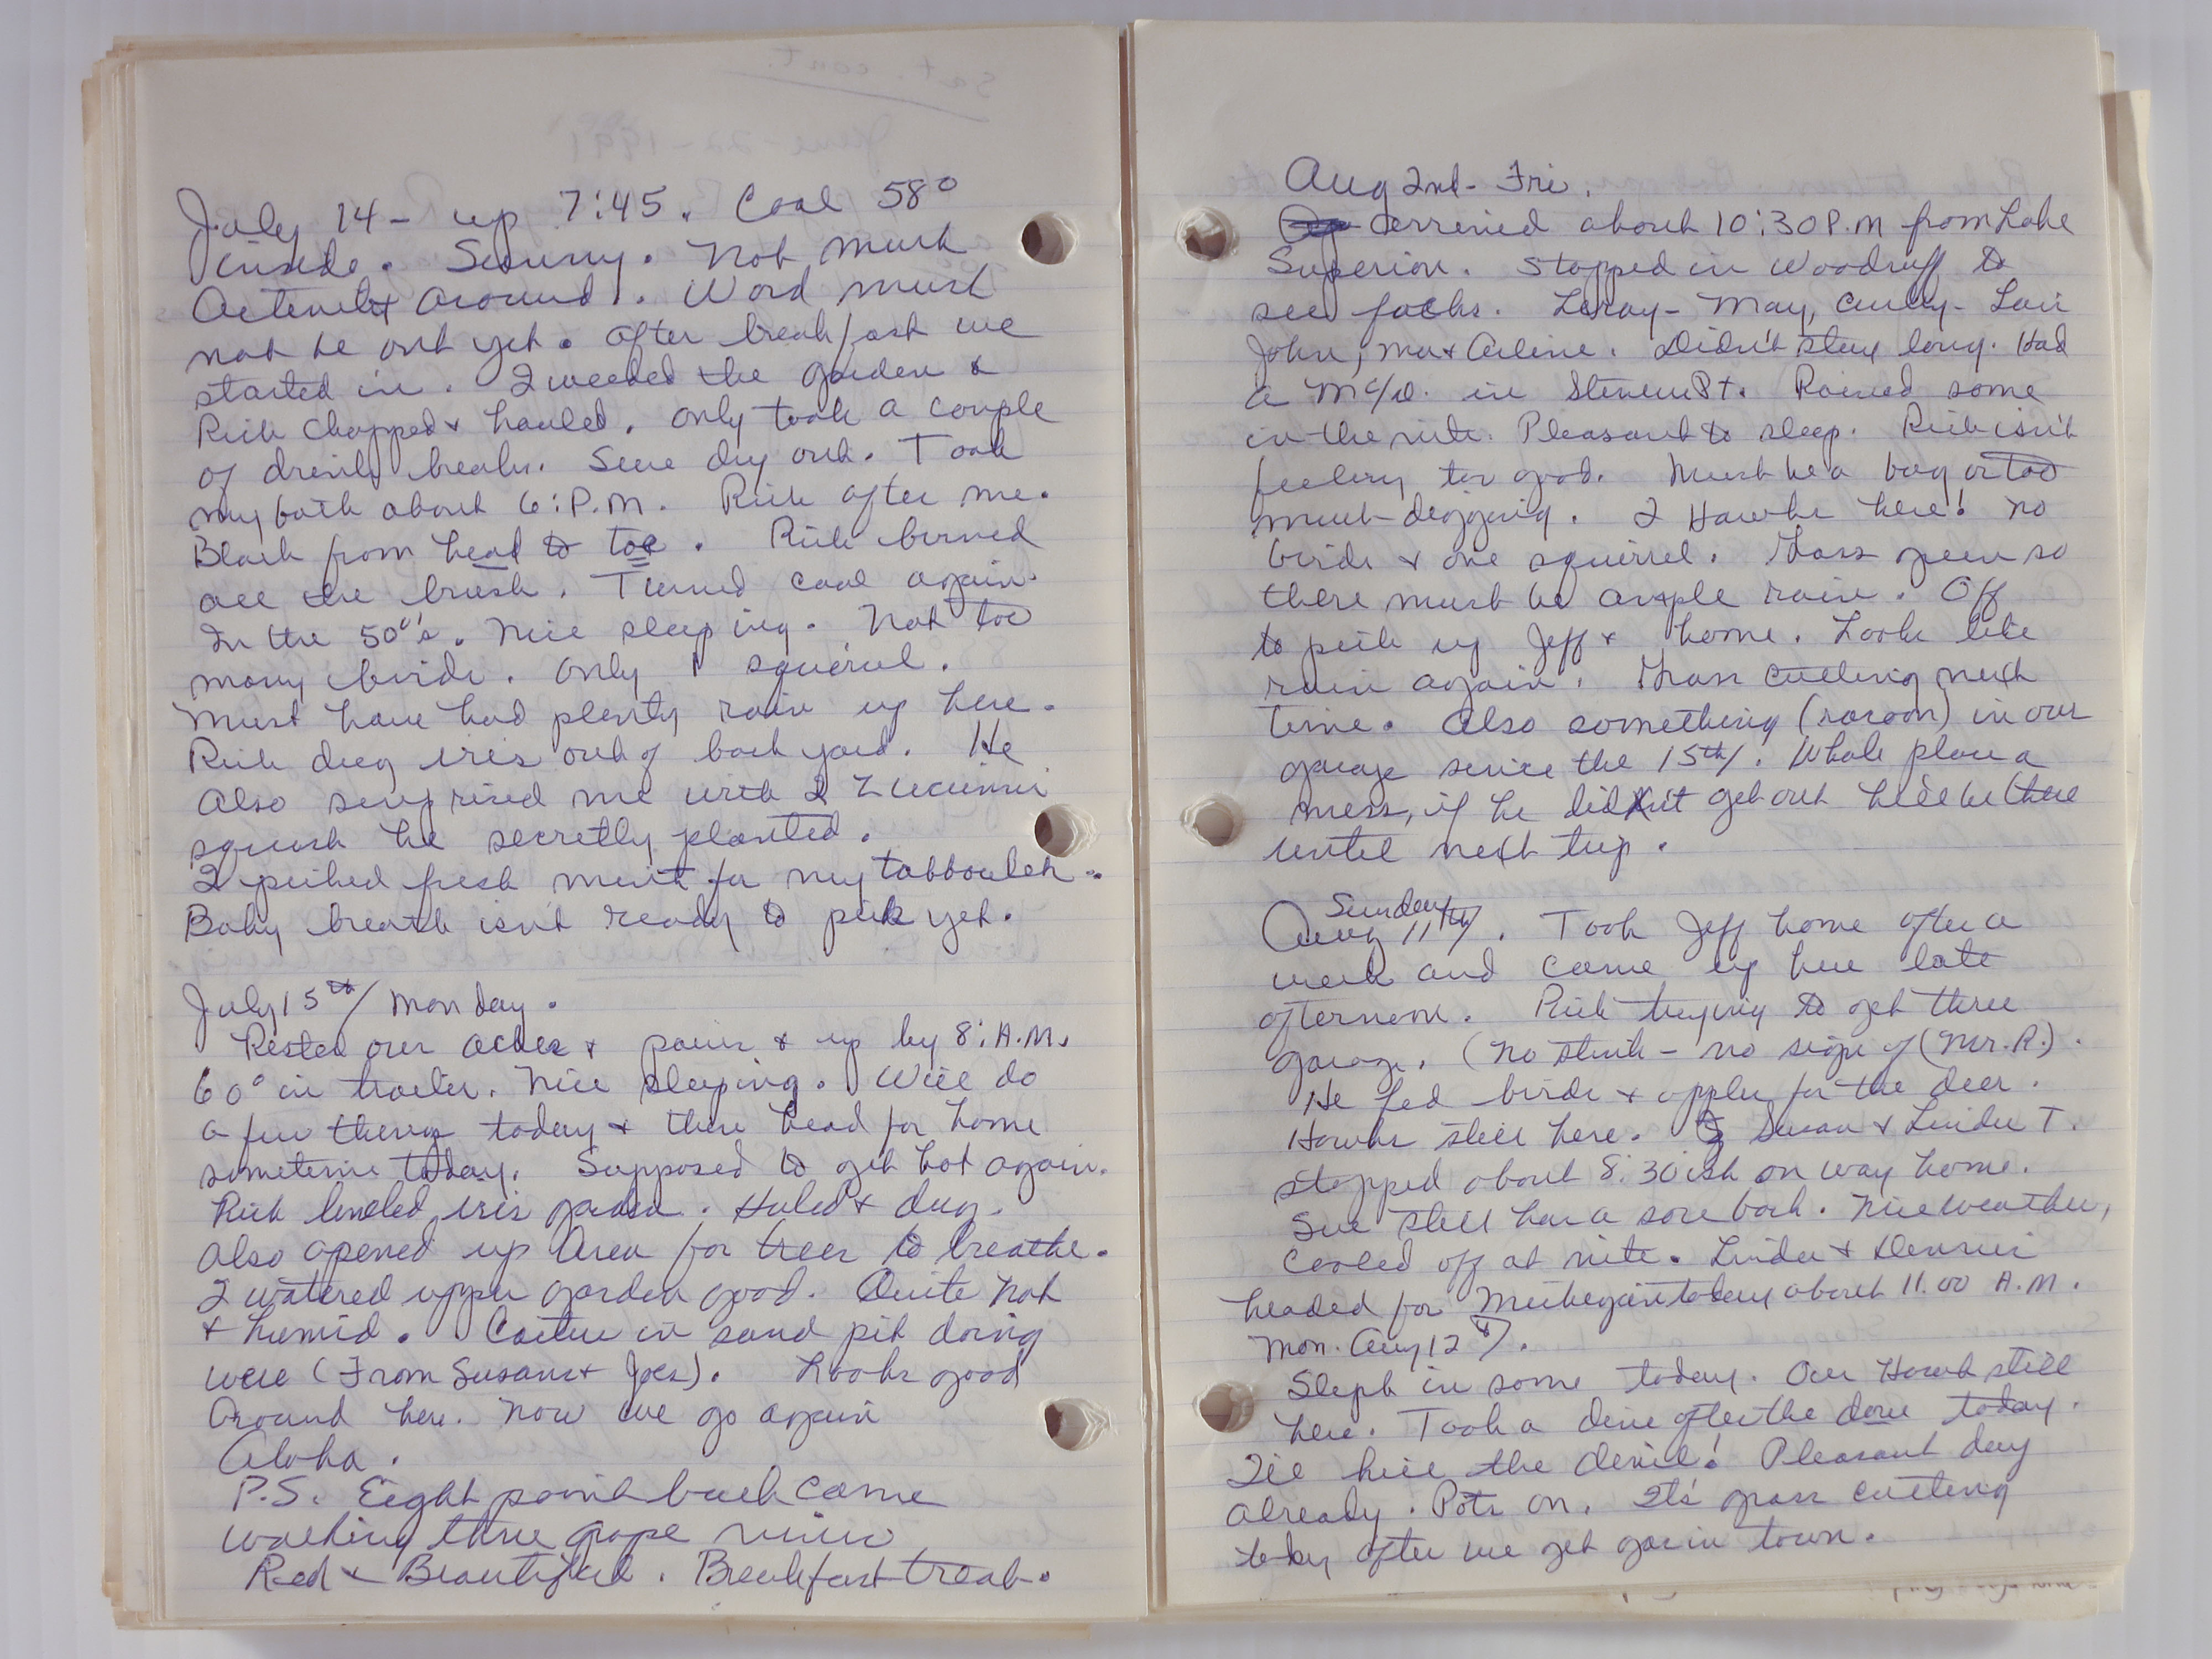 July 14 - up 7:45. Cool 58°
inside. Sunny. Not much
around. Word must
not be out yet. After breakfast we
started in. I weeded the garden &
Rich chopped & hauled. Only took a couple
of drink breaks. Sure dry out. Took
my bath about 6:P.M. Rich after me.
Black from head to toe. Rich burned
all the brush. Turned cool again.
In the 50°'s. Nice sleeping. Not too
many birds. Only 1 squirrel.
Must have had plenty rain up here.
Rich dug iris out of back yard. He
Also surprised me with 2
squash he secretly planted.
I picked fresh mint for my tabbouleh.
Baby breath isn't ready to pick yet.
July 15th/ Monday.
Rested our aches & pains & up by 8:A.M.
60° in trailer. Nice sleeping. Will do
a few things today & then head for home
sometime today. Supposed to get hot again.
Rich leveled iris garden. Haled & dug.
Also opened up area for trees to breathe.
I watered upper garden good. Quite hot
& humid. Cactus in sand pit doing
well (From Susans & Joes). Looks good
around here. Now we go again
Aloha.
P.S. Eight point buck came
walking thru grape vines
Red & Beautiful. Breakfast treat.
Aug 2nd - Fri.
arrived about 10:30 P.M from Lake
Superior. Stopped in Woodruff to
see folks. Leroy - May, Curly - Lori
John, Ma & Arline. Didn't stay long. Had
a McD. in Steven Pt. Rained some
in the nite. Pleasant to sleep. Rich isn't
feeling too good. Must be a bug or too
much digging. 2 Hawks here! No
birds & one squirrel. Grass green so
there must be ample rain. Off
to pick up Jeff & home. Looks like
rain again. Grass cutting next
time. Also something (racoon) in our
garage since the 15th/. Whole place a
mess, if he didn't get out he'll be there
until next trip.
Sunday
Aug 11th/. Took Jeff home after a
week and came up here late
afternoon. Rich trying to get thru
garage. (No stink - no sign of (Mr. R.).
He fed birds & apples for the deer.
Hawks still here. Susan & Linda T.
stopped about 8:30ish on way home.
Sue still has a sore back. Nice weather,
cooled off at nite. Linda & Dennis
headed for Michigan today about 11.00 A.M.
Mon. Aug 12th/.
Sleph in some today. Our Hawk still
here. Took a dive after the dove today.
I'll kill the devil! Pleasant day
already. Pots on. It's grass cutting
today after we get gas in town.